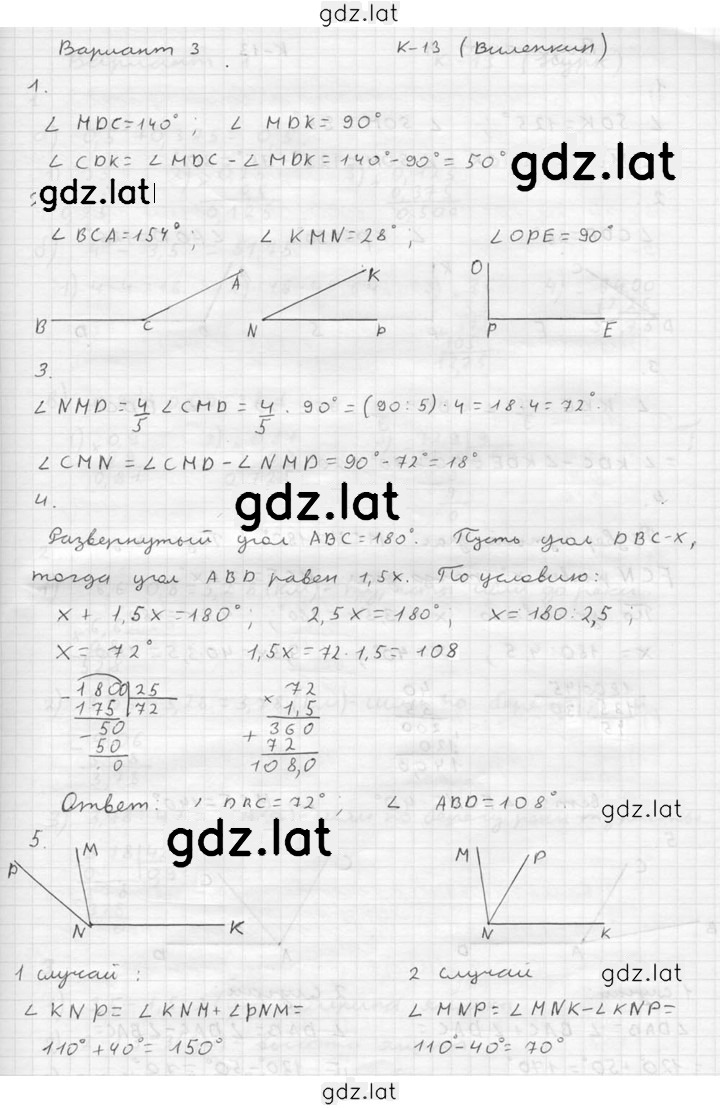 gdz.lat
Вариант 3 К-13 (Виленкин)
1.
∠ MDC=140°; ∠ MDK=90°
∠ CDK= ∠ MDC-∠ MDK=140°-90°=50°
gdz.lat
gdz.lat
∠ BCA=154°; ∠ KMN=28°; ∠OPE=90°
A K O
B C N P P E
3.
∠ NMD = 4/5 ∠ CMD = 4/5 · 90°=(90:5)·4=18·4=72°.
∠ CMN = ∠ CMD-∠ NMD=90°-72°=18°
gdz.lat
4.
Развернутый угол ABC=180°. Пусть угол DBC-x,
тогда угол ABD равен 1,5x. По условию:
x + 1,5x=180°; 2,5x=180°; x=180:2,5;
x= 72° 1,5x=72·1,5= 108
- 1800 25 72
175 72 × 1,5
- 50 360
50 + 72
0 108,0
Ответ: DBC=72°; ∠ ABD=108°
gdz.lat
gdz.lat
5.
P M N K
M P N K
1 случай: 2 случай
gdz.lat
∠ KNP= ∠KNM+∠PNM= ∠ MNP=∠MNK-∠KNP=
110°+40°= 150° 110°-40°= 70°
gdz.lat